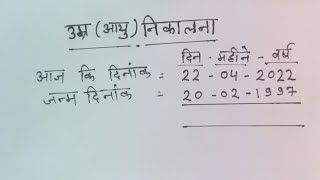 उम्र (आयु) निकालना
दिन - महीने - वर्ष
आज कि दिनांक = 22 - 04 - 2022
जन्म दिनांक = 20 - 02 - 1997